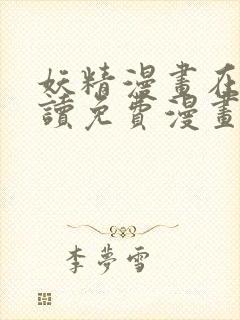 妖精漫畫在
讀免費漫畫
李夢雪